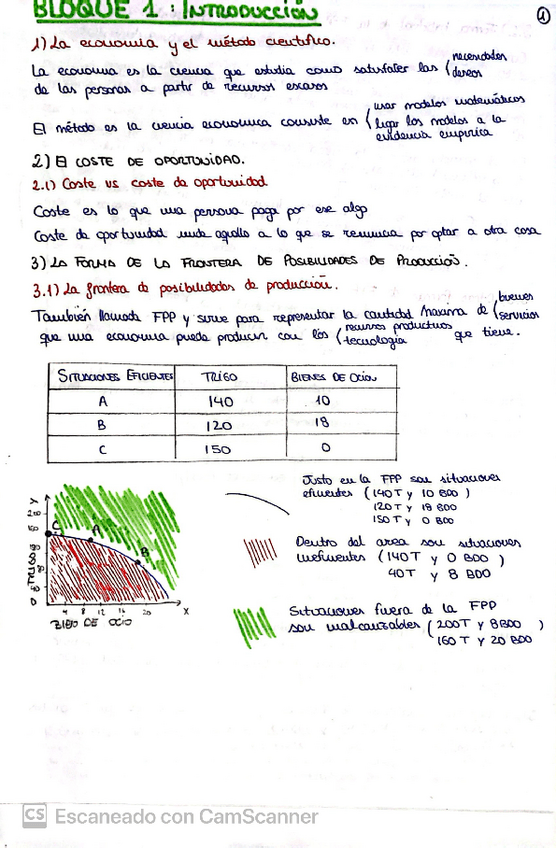 BLOQUE 1: INTRODUCCIÓN
1
1) La economía y el método científico.
La economía es la ciencia que estudia como satisfacer las (necesidades
deseos
de las personas a partir de recursos escasos
El método es la ciencia económica consiste en (usar modelos matemáticos
ligar los modelos a la
evidencia empírica
2) El COSTE DE OPORTUNIDAD.
2.1) Coste vs coste de oportunidad
Coste es lo que una persona paga por ese algo
Coste de oportunidad mide aquello a lo que se renuncia por optar a otra cosa
3) LA FORMA DE LA FRONTERA DE POSIBILIDADES DE PRODUCCIÓN.
3.1) La frontera de posibilidades de producción.
También llamada FPP y sirve para representar la cantidad máxima de (bienes
servicios
que una economía puede producir con los (recursos productivos
tecnología
que tiene.
SITUACIONES EFICIENTES TRIGO BIENES DE OCIO
A 140 10
B 120 18
C 150 0
Justo en la FPP son situaciones
eficientes (140T y 10 BOO
120T y 18 BOO
150T y 0 BOO
Dentro del area son situaciones
ineficientes (140T y 0 BOO)
40T y 8 BOO
Situaciones fuera de la FPP
son inalcanzables (200T y 8BOO)
160T y 20 BOO
Y
C
A
B
TRIGO
0
4 8 12 16 20 X
DE OCIO
CS Escaneado con CamScanner